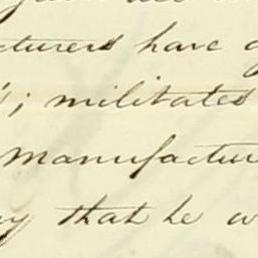 cturers have
; militates
manufactur
that he